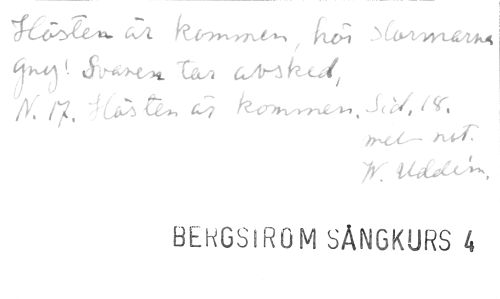 Hösten är kommen, hör stormarna
gny! Svanen tar avsked,
N. 17. Hösten är kommen. Sid. 18.
mel not.
W. Uddén.
BERGSTRÖM SÅNGKURS 4